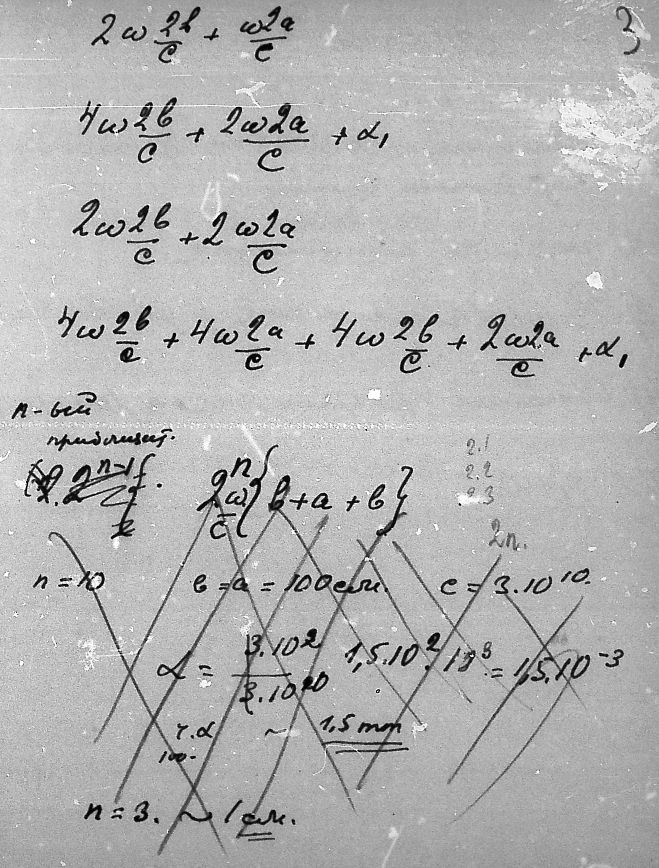 3
2ω 2b/c + ω2a/c
4ω 2b/c + 2ω2a/c + α₁
2ω 2b/c + 2 ω2a/c
4ω 2b/c + 4ω 2a/c + 4ω 2b/c + 2ω2a/c + α₁
n-ый
приближ.
2ⁿω/c {b+a+b}
2.1
2.2
2.3
2n.
n=10 b=a=100см. c=3.10¹⁰.
α = 3.10²/3.10¹⁰ 1,5.10². 10³ = 1,5.10⁻³
~ 1,5 mm
n=3. ~ 1 см.